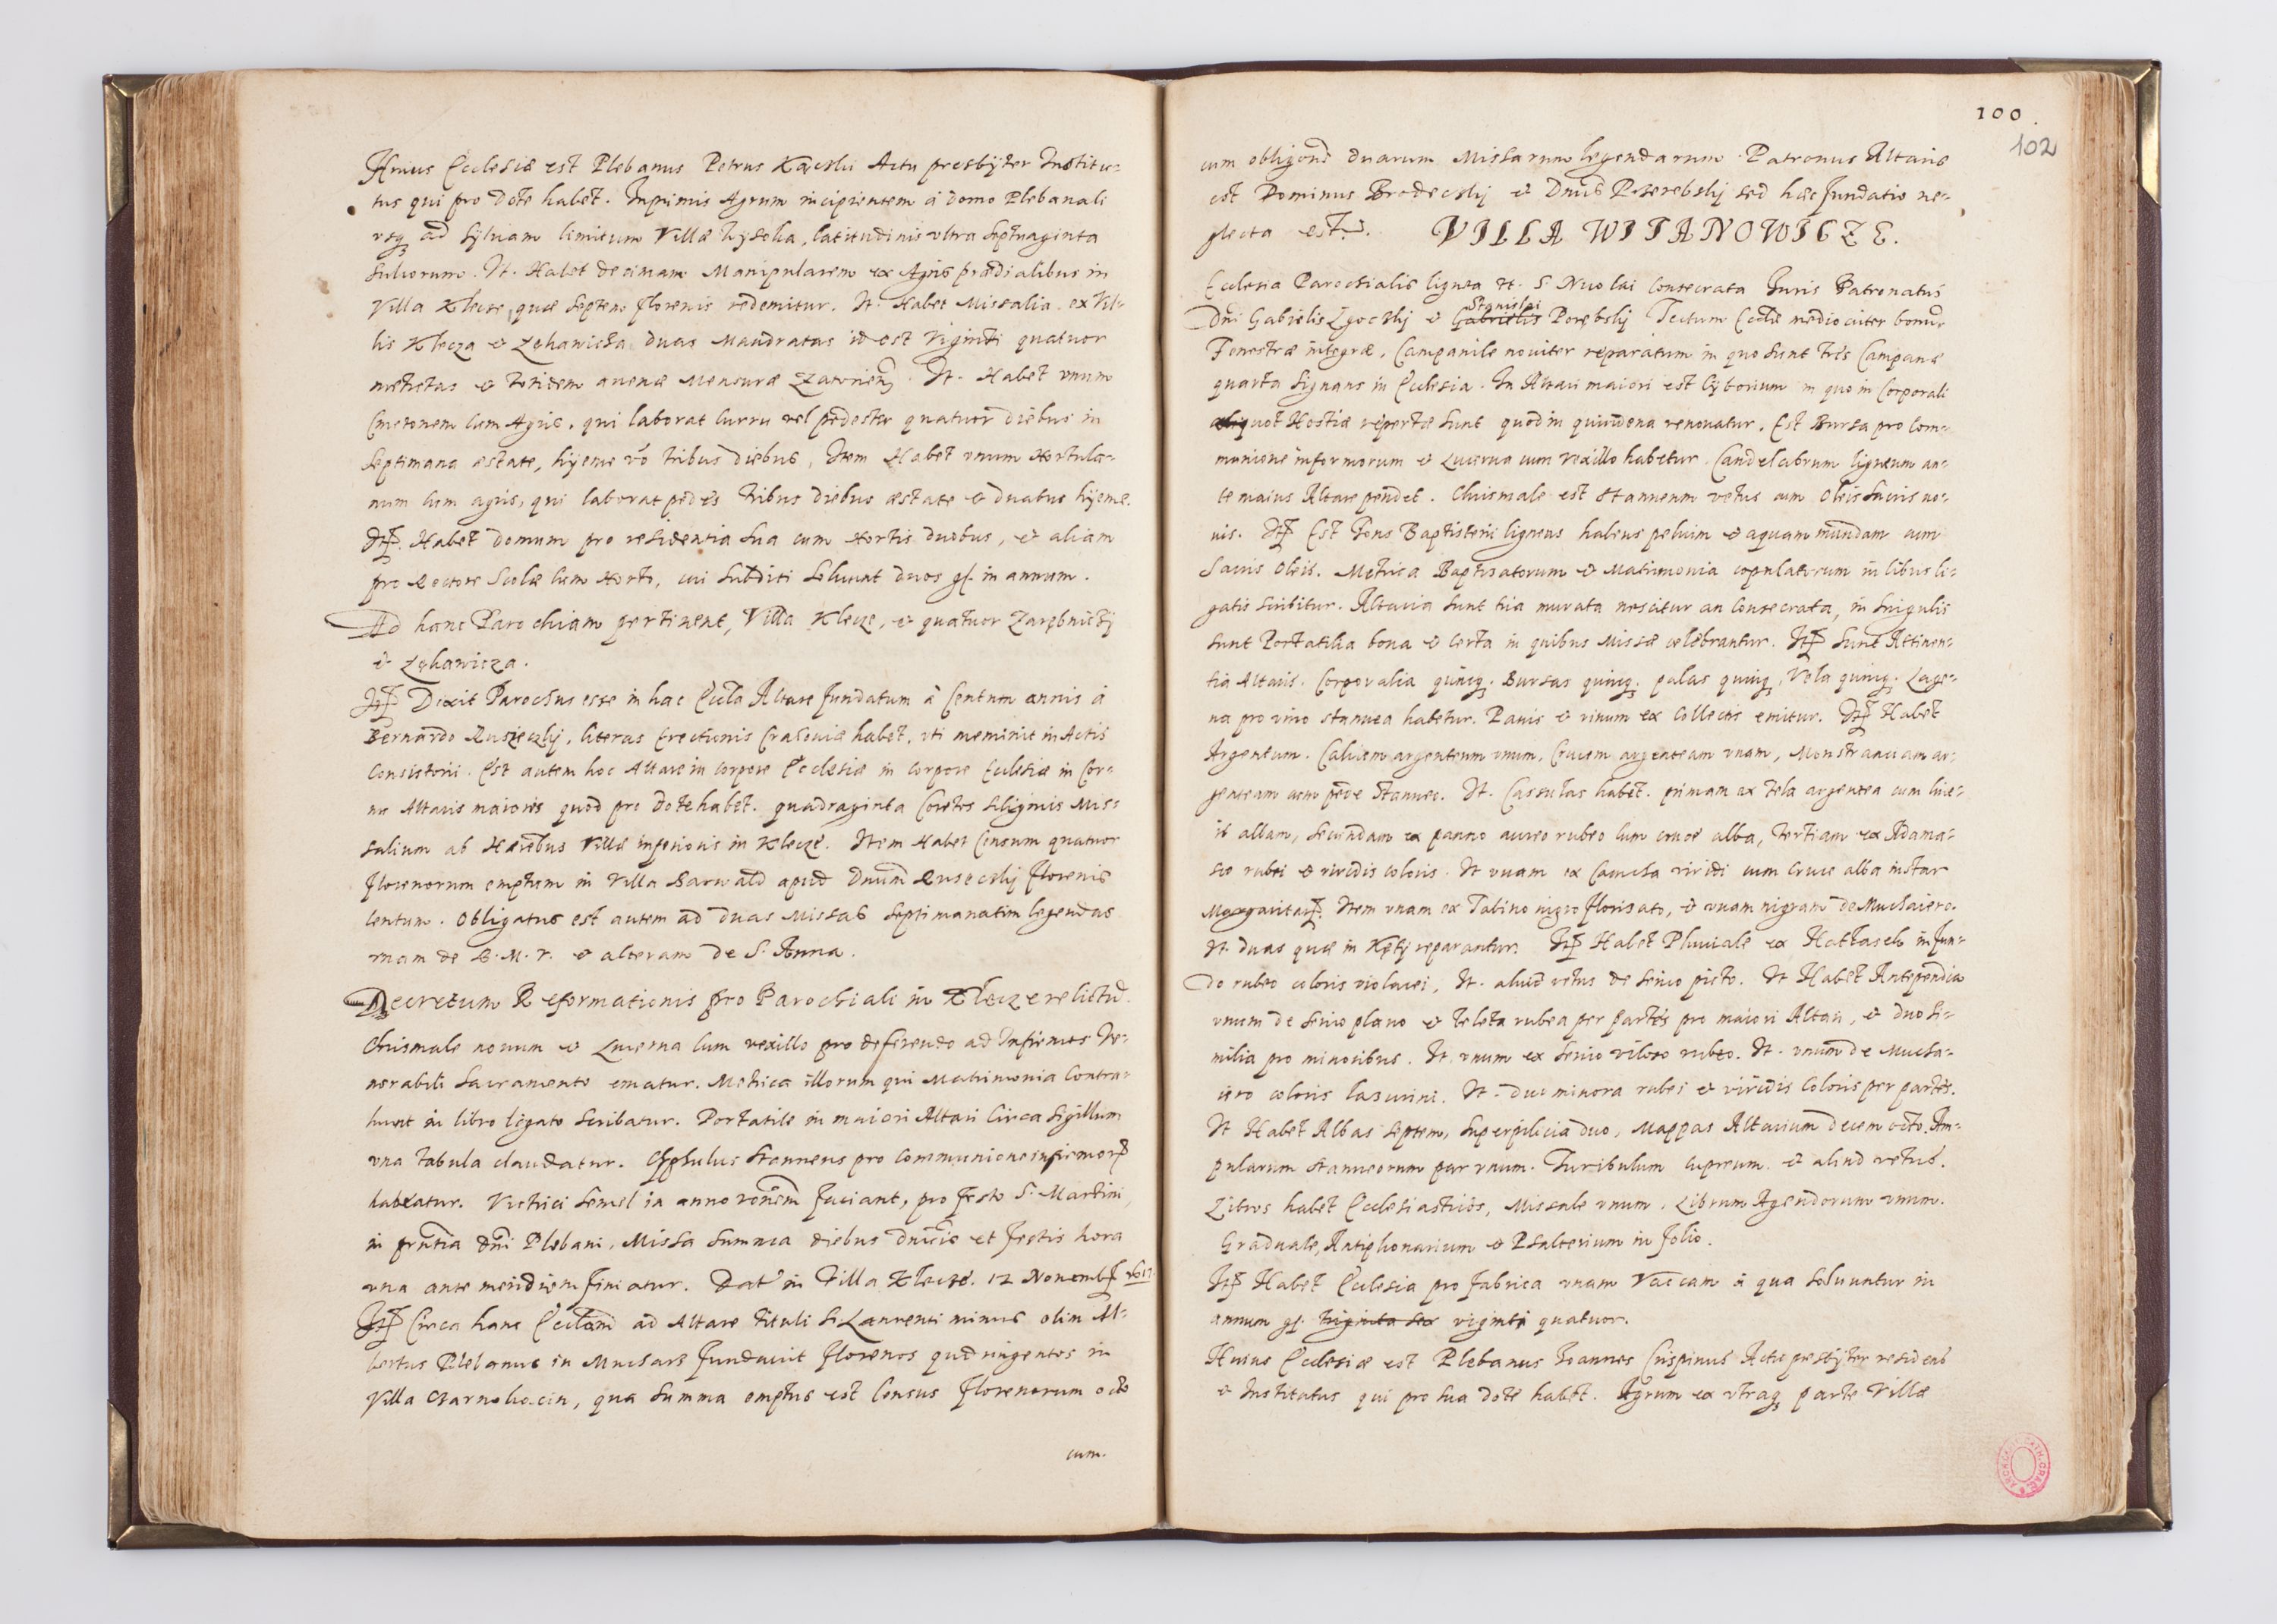 Huius Ecclesiæ est Plebanus Petrus Kaczki Actu presbÿter Institu-
tus qui pro dote habet. Inprimis Agrum incipientem à domo Plebanali
vsq ad sÿluam limitum Villæ Lÿsocha, latitudinis vltra septuaginta
sulcorum. It. Habet decimam Manipularem ex Agris prædialibus in
Villa Klecze, quæ septem florenis redemitur. It. Habet Missalia ex Vil-
lis Klecza et Lękawicza duas Maudratas id est viginti quatuor
metretas et totidem auenæ Mensuræ Zatorien. It. Habet vnum
Cmetonem cum Agris, qui laborat curru vel pedester quatuor diebus in
septimana æstate, hÿeme vo tribus diebus, Item Habet vnum Hortula-
num cum agris, qui laborat pedes tribus diebus æstate et duabus hÿeme.
Itp. Habet domum pro residentia sua cum Hortis duobus, et aliam
pro Rectore Scolæ cum Horto, cui subditi soluunt duos gr. in annum.
Ad hanc Parochiam pertinent, Villa Klecze, et quatuor Zarębnicÿ
et Lękawicza.
Itp Dixit Parochus esse in hac Eccla Altare fundatum à Centum annis à
Bernardo Ruszeczkÿ, literas Erectionis Cracouiæ habet, vti meminit in Actis
Consistorii. Est autem hoc Altare in corpore Ecclesiæ in corpore Ecclesiæ in Cor-
nu Altaris maioris quod pro dote habet. quadraginta Coretos siliginis Mis-
salium ab Hæredibus Villæ inferioris in Klecze. Item Habet Censum quatuor
florenorum emptum in Villa Barwald apud Dnum Ruseckÿ florenis
Centum. Obligatus est autem ad duas Missas septimanatim legendas
vnam de B. M. V. et alteram de S. Anna.
Decretum Reformationis pro Parochiali in Klecze relictu.
Chrismale nouum et Lucerna cum vexillo pro deferendo ad Infirmos Ve-
nerabili Sacramento ematur. Metrica illorum qui Matrimonia Contra-
hunt in libro ligato scribatur. Portatile in maiori Altari circa sigillum
vna tabula claudatur. Cÿphulus stanneus pro communione infirmorp
habeatur. Vitrici semel in anno ronem faciant, pro festo S. Martini,
in pntia dni Plebani, Missa summa diebus dnicis et festis hora
vna ante meridiem finiatur. Dat in Villa Klecze. 12 Nouembr 1617.
Itp Circa hanc Ecclam ad Altare tituli S Laurenti minus olim Al-
bertus Plebanus in Mucharz fundauit florenos quadringentos in
Villa Czarnokoczin, qua summa emptus est Census florenorum octo
cum.
100.
102
cum obligone duarum Missarum legendarum. Patronus Altaris
est Dominus Brodeckÿ et Dnus Pszerebskÿ sed hæc fundatio ne-
glecta est. VILLA WITANOWICZE.
Ecclesia Parochialis lignea tt. S Nicolai Consecrata Iuris Patronatus
Stanislai
Dni Gabrielis Zgockÿ et Gabrielis Porębskÿ Tectum Ecclæ mediocriter bonu
Fenestræ integræ, Campanile nouiter reparatum in quo sunt tres Campanæ
quarta signans in Ecclesia. In Altari maiori est Cÿborium in quo in Corporali
aliquot Hostiæ repertæ sunt quod in quindena renouatur. Est Bursa pro Com-
munione infirmorum et Lucerna cum vexillo habetur. Candelabrum ligneum an-
te maius Altare pendet. Chrismale est stanneum vetus cum Oleis sacris no-
uis. Itp Est Fons Baptisterii ligneus habens peluim et aquam mundam cum
Sacris Oleis. Metrica Baptisatorum et Matrimonia copulatorum in libris li-
gatis scribitur. Altaria sunt tria murata nescitur an consecrata, in singulis
sunt Portatilia bona et certa in quibus Missæ celebrantur. Itp sunt Attinen-
tia Altaris. Corporalia quinq. Bursas quinq. palas quinq, Vela quinq. Lage-
na pro vino stannea habetur. Panis et vinum ex collectis emitur. Itp Habet
Argentum. Calicem argenteum vnum, Crucem argenteam vnam, Monstranciam ar-
genteam cum pede stanneo. It. Cassulas habet. primam ex tela argentea cum lite-
is allam, secundam ex panno aureo rubeo cum cruce alba, tertiam ex Adama-
sco rubei et viridis coloris. It vnam ex Camcha viridi cum cruce alba instar
Margaritarp. Item vnam ex Tabino nigro florisato, et vnam nigram de Muchaiero.
It duas quæ in Kętÿ reparantur. Itp Habet Pluuiale ex Hattasch in fun-
do rubeo coloris violacei, It. aliud vetus de serico picto. It Habet Antependia
vnum de serico plano et teleta rubea per partes pro maiori Altari, et duo si-
milia pro minoribus. It. vnum ex serico viloso rubeo. It. vnum de Mucha-
iero coloris lasurini. It. duo minora rubei et viridis coloris per partes.
It Habet Albas septem, superpilicia duo, Mappas Altarium decem octo. Am-
pularum stanneorum par vnum. Turibulum cupreum et aliud vetus.
Libros habet Ecclesiasticos, Missale vnum, Librum Agendorum vnum.
Graduale, Antiphonarium et Psalterium in folio.
Itp Habet Ecclesia pro fabrica vnam Vaccam à qua soluuntur in
annum gr. triginta sex viginti quatuor.
Huius Ecclesiæ est Plebanus Ioannes Crispinus Actu presbÿter residens
et Institutus qui pro sua dote habet. Agrum ex vtraq parte Villæ